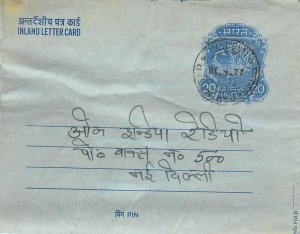 अन्तर्देशीय पत्र कार्ड
INLAND LETTER CARD
भारत
20 INDIA 20
ओल इन्डिया रेडियो
पो० बाक्स नं० 500
नई दिल्ली
पिन PIN